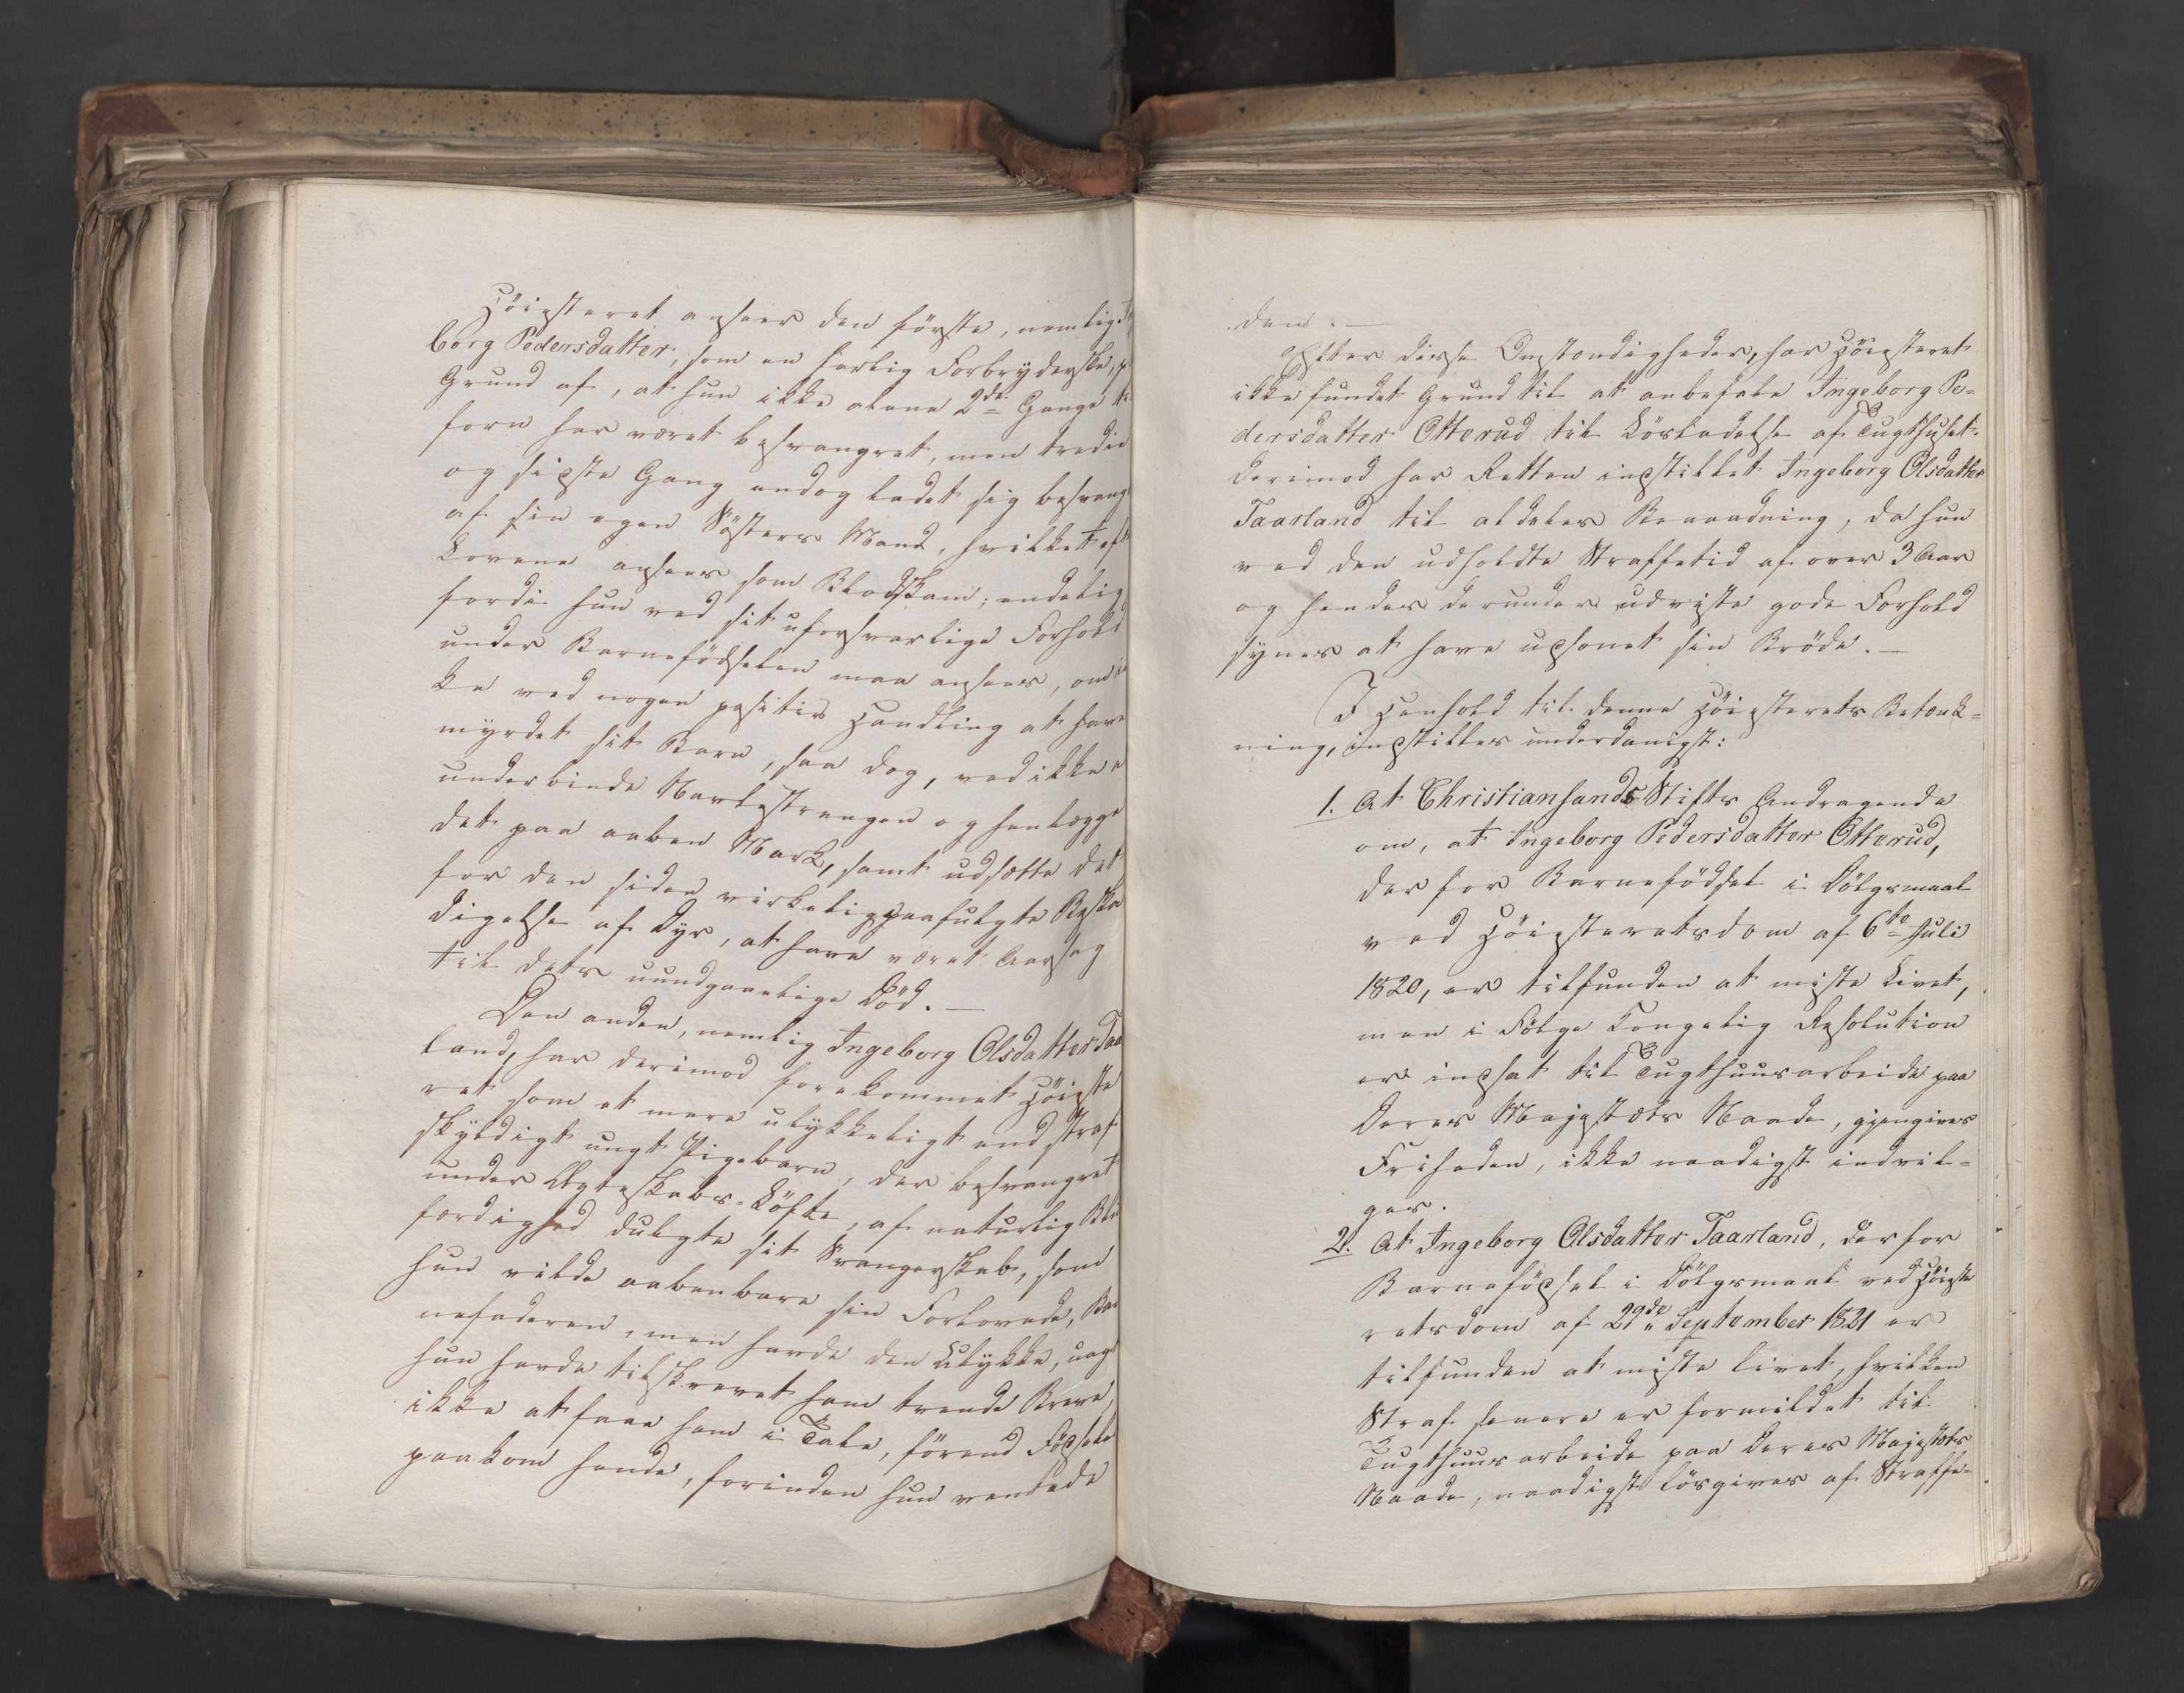 Höiesteret ansees den förste, nemlig
borg Pedersdatter, som en farlig Forbryderske,
Grund af, at hun ikke alene 2de Gange
forn har været besvangret, men tredie
og sidste Gang endog ladet sig besvang
af sin egen Sösters Mand, hvilket
Lovene ansees som Blodskam; endelig
fordi hun ved sit uforsvarlige Forhold
under Barnefödselen maa ansees, om
ke ved nogen positiv Handling at have
myrdet sit Barn, saa dog, ved ikke
underbinde Navlestrengen og henlægge
det paa aaben Mark, samt udsætte det
for den siden virkelig paafulgte Beska
digelse af Dyr, at have været Aarsag
til dets uundgaaelige Död. —
Den anden, nemlig Ingeborg Olsdatter Taa
land, har derimod forekommet Höieste
ret som et mere ulykkeligt end straf
skyldigt ungt Pigebarn, der besvangret
under Ægteskabs-Löfte, af naturlig Blu
færdighed dulgte sit Svangerskab, som
hun vilde aabenbare sin Forlovede, Bar
nefaderen, men havde den Ulykke, uagt
hun havde tilskrevet ham trende Breve,
ikke at faae ham i Tale, förend Födsele
paakom hende, forinden hun ventede
den. —
Efter disse Omstændigheder, har Höiesteret
ikke fundet Grund til at anbefale Ingeborg Pe-
dersdatter Otterud til Lösladelse af Tugthuset.
Derimod har Retten indstillet Ingeborg Olsdatter
Taarland til aldeles Benaadning, da hun
ved den udholdte Straffetid af over 3 Aar
og hendes derunder udviste gode Forhold
synes at have udsonet sin Bröde. —
I Henhold til denne Höiesterets Betænk-
ning, indstilles underdanigst:
1. At Christiansands Stifts Andragende
om, at Ingeborg Pedersdatter Otterud,
der for Barnefödsel i Dölgsmaal
ved Höiesteretsdom af 6te Juli
1820, er tilfunden at miste Livet,
men i Fölge Kongelig Resolution
er indsat til Tugthuusarbeide paa
Deres Majestæts Naade, gjengives
Friheden, ikke naadigst indvil-
ges.
2. At Ingeborg Olsdatter Taarland, der for
Barnefödsel i Dölgsmaal ved Höieste
retsdom af 29de September 1821 er
tilfunden at miste Livet, hvilken
Straf senere er formildet til
Tugthuusarbeide paa Deres Majestæts
Naade, naadigst lösgives af Straffe-